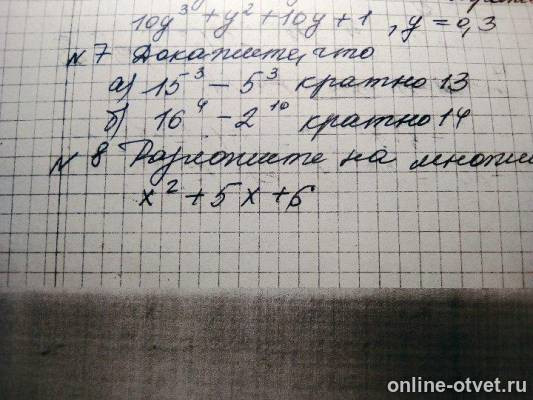 10y³ + y² + 10y + 1, y = 0,3
№7 Докажите, что
а) 15³ - 5³ кратно 13
б) 16⁴ - 2¹⁰ кратно 14
№8 Разложите на множи
x² + 5x + 6
online-otvet.ru